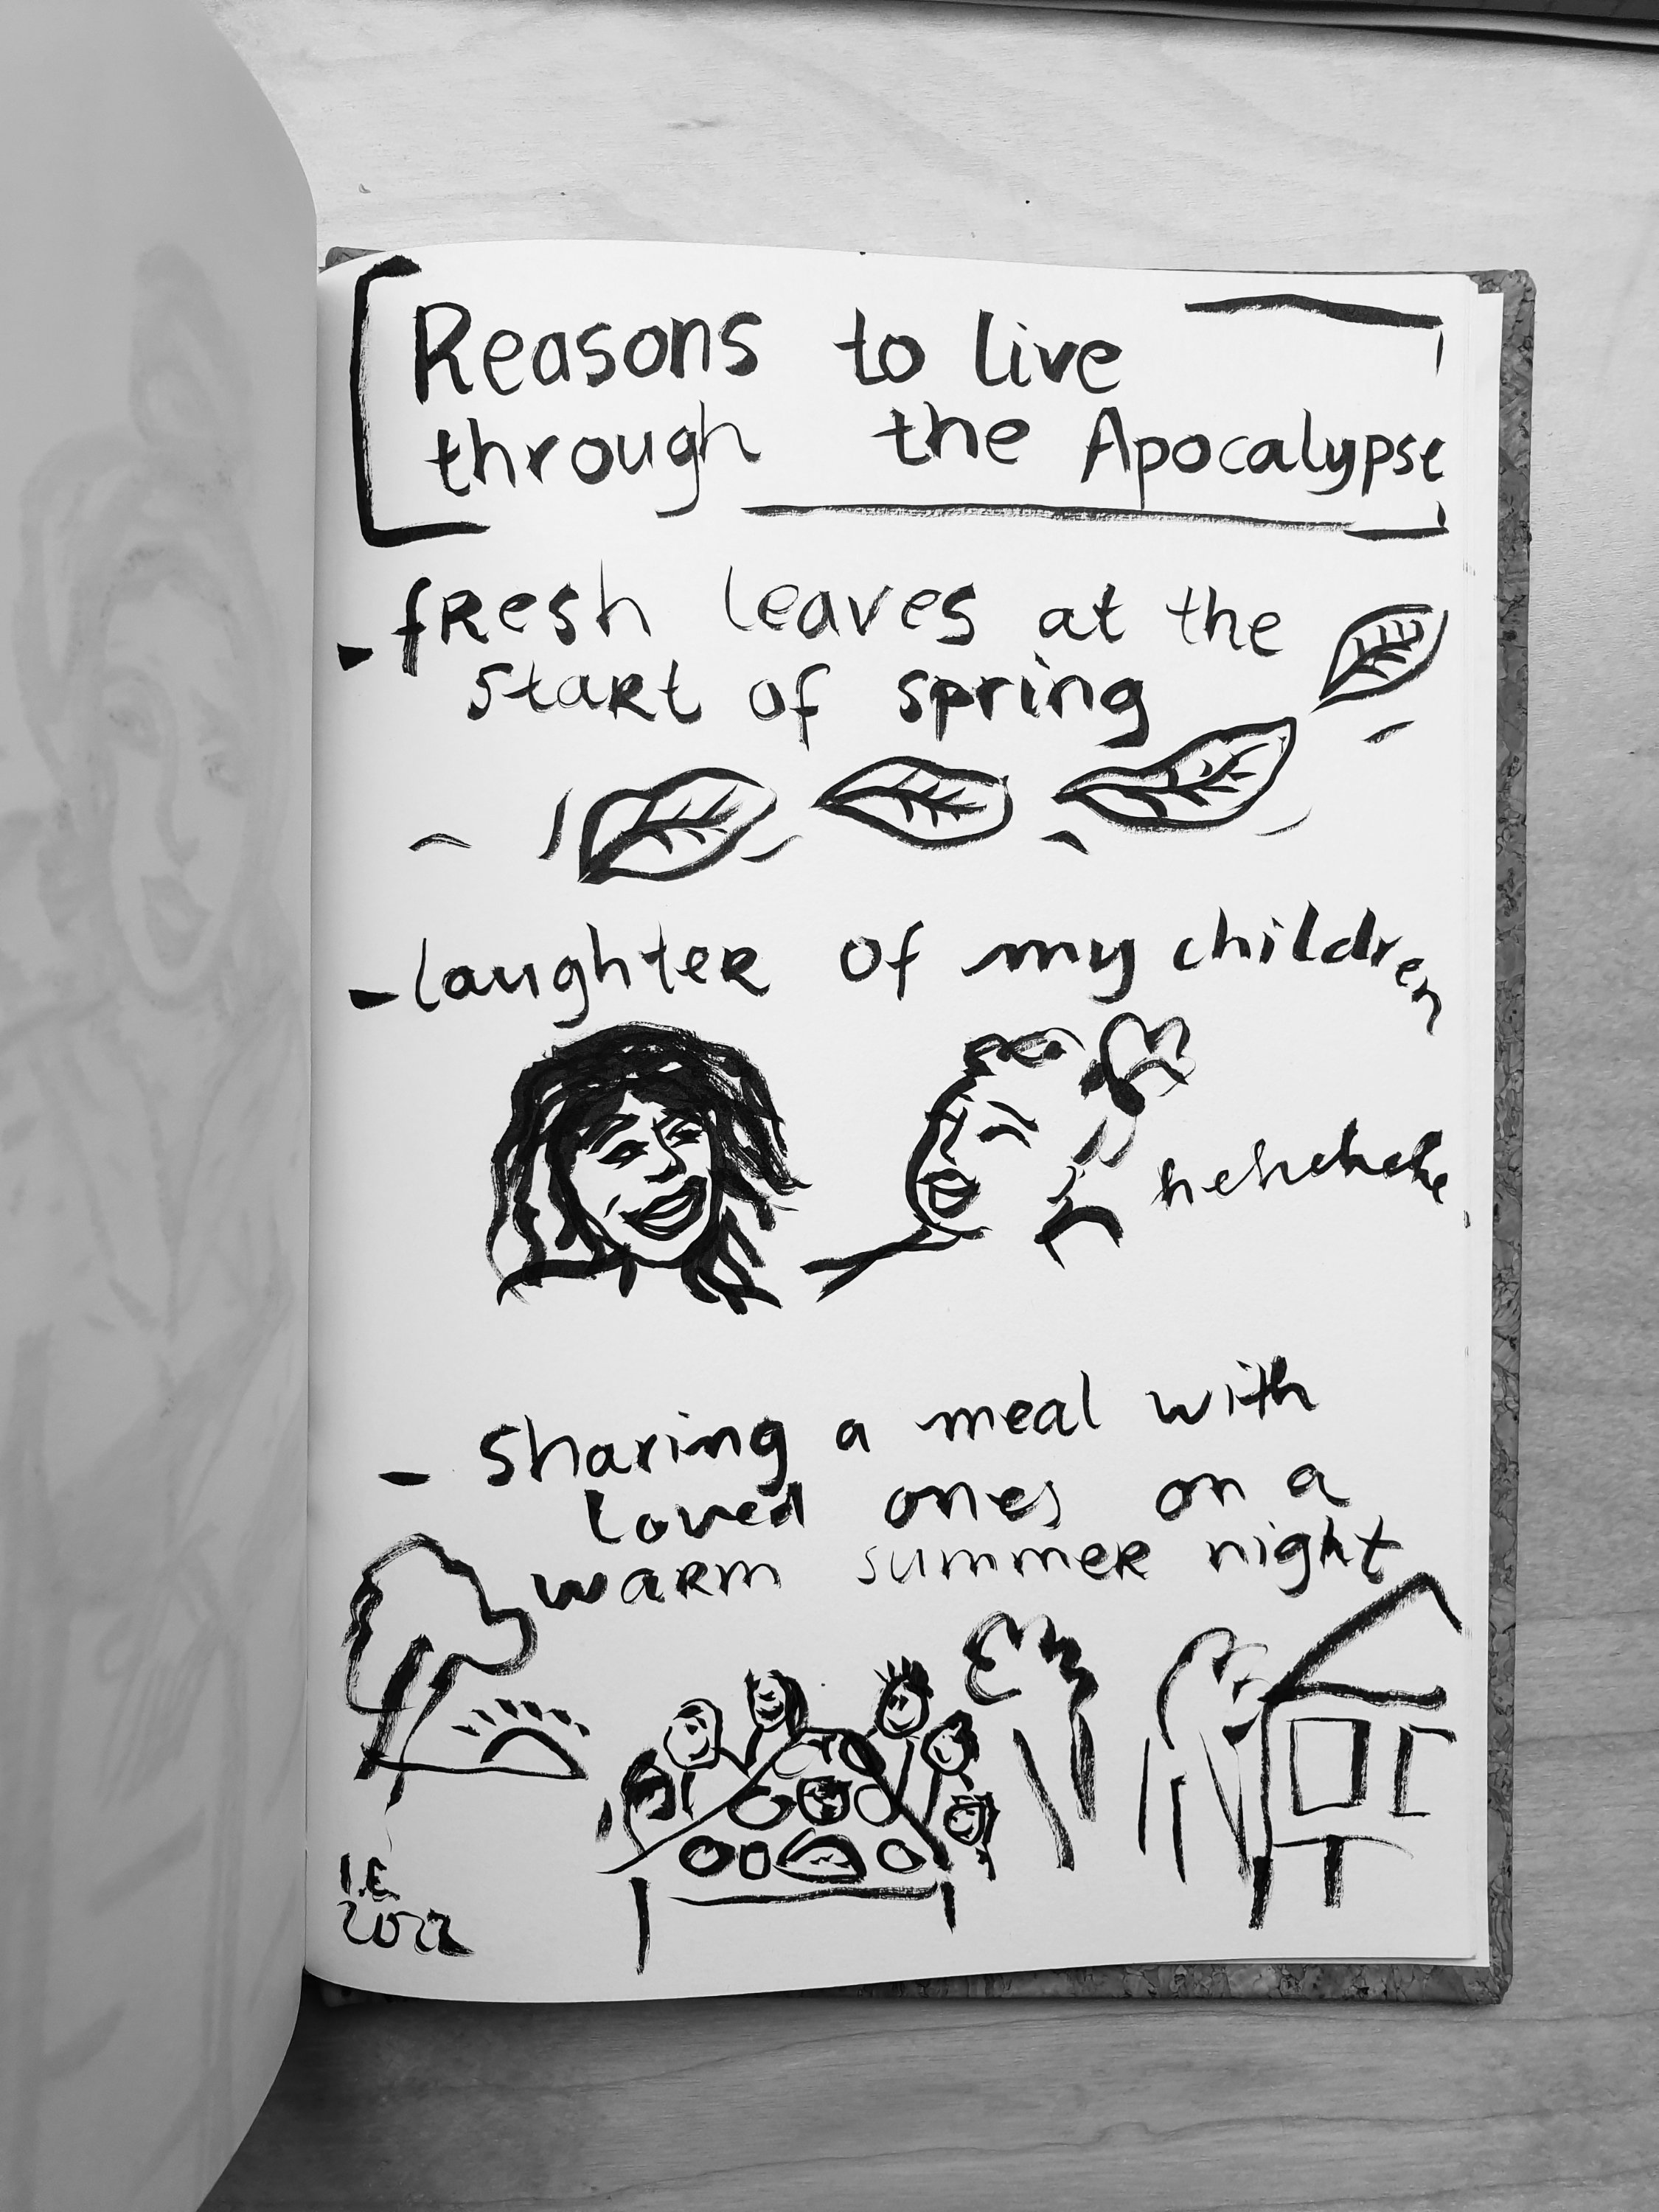 Reasons to live
through the Apocalypse
- fresh leaves at the
start of spring
- laughter of my children
hehehehe
- sharing a meal with
loved ones on a
warm summer night
I.E
2022